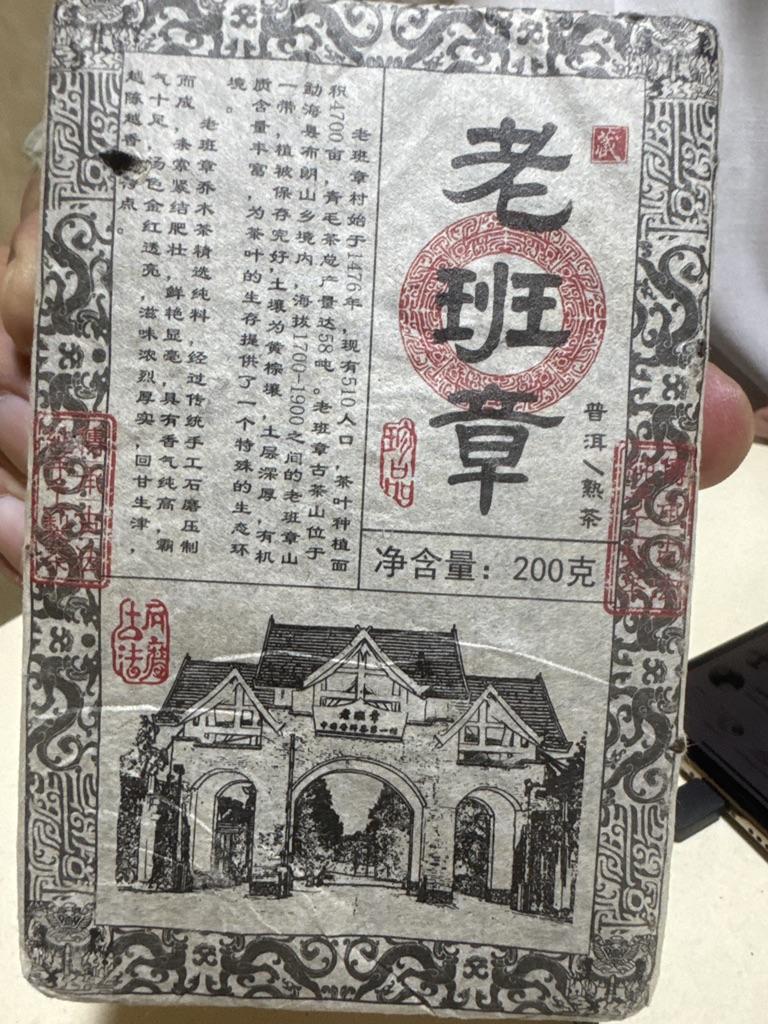 藏
老班章
普洱/熟茶
珍品
净含量：200克
老班章村始于1476年，现有510人口，茶叶种植面
积4700亩，青毛茶总产量达58吨。老班章古茶山位于
勐海县布朗山乡境内，海拔1700-1900之间的老班章山
一带，植被保存完好，土壤为黄棕壤，土层深厚，有机
质含量丰富，为茶叶的生存提供了一个特殊的生态环
境。
老班章乔木茶精选纯料，经过传统手工石磨压制
而成，条索紧结肥壮，鲜艳显毫，具有香气纯高，霸
气十足，汤色金红透亮，滋味浓烈厚实，回甘生津，
越陈越香 特点。
石磨
古法
老班章
中国普洱茶第一村